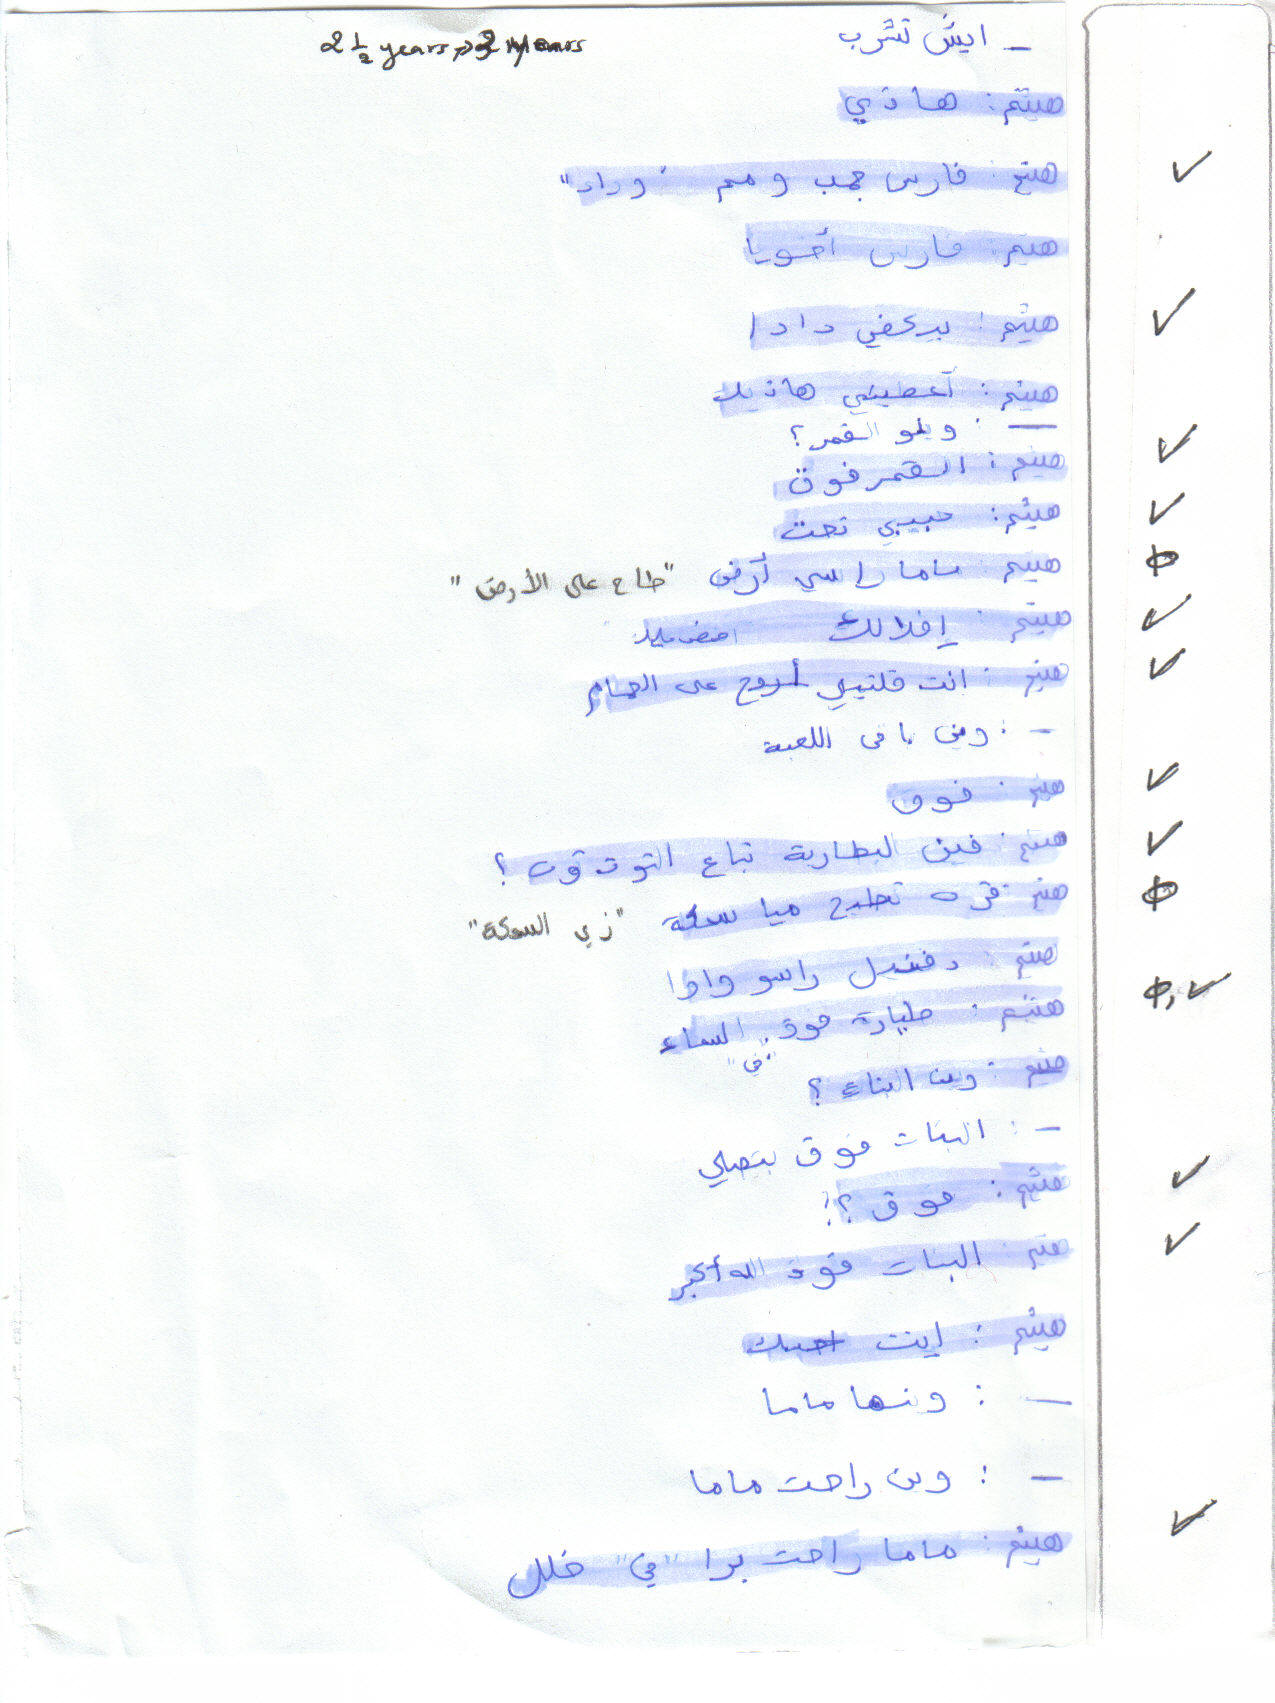 2 ½ years → 3 years
– ايش تشرب
هيثم: هاذي
هيثم: فارس جمب ومم "وراء"
هيثم: فارس أخويا
هيثم: دادا
هيثم: أعطيني هاذيك
– : وينو القمر؟
هيثم: القمر فوق
هيثم: حبيبي تحت
هيثم: ماما راسي أرض "طاح على الأرض"
هيثم:
هيثم: انت قلتيلي أروح على الحمام
– : وين باقي اللعبة
هيثم: فوق
هيثم: فين البطارية تباع التوتوت؟
هيثم: تطيح ميا سمكة "زي السمكة"
هيثم: راسو واوا
هيثم: طيارة فوق السماء
"في"
هيثم: وين البنات؟
– : البنات فوق بتصلي
هيثم: فوق؟!
هيثم: البنات فوق الله أكبر
هيثم: إينت
– : وينها ماما
– : وين راحت ماما
هيثم: ماما راحت برا "في"